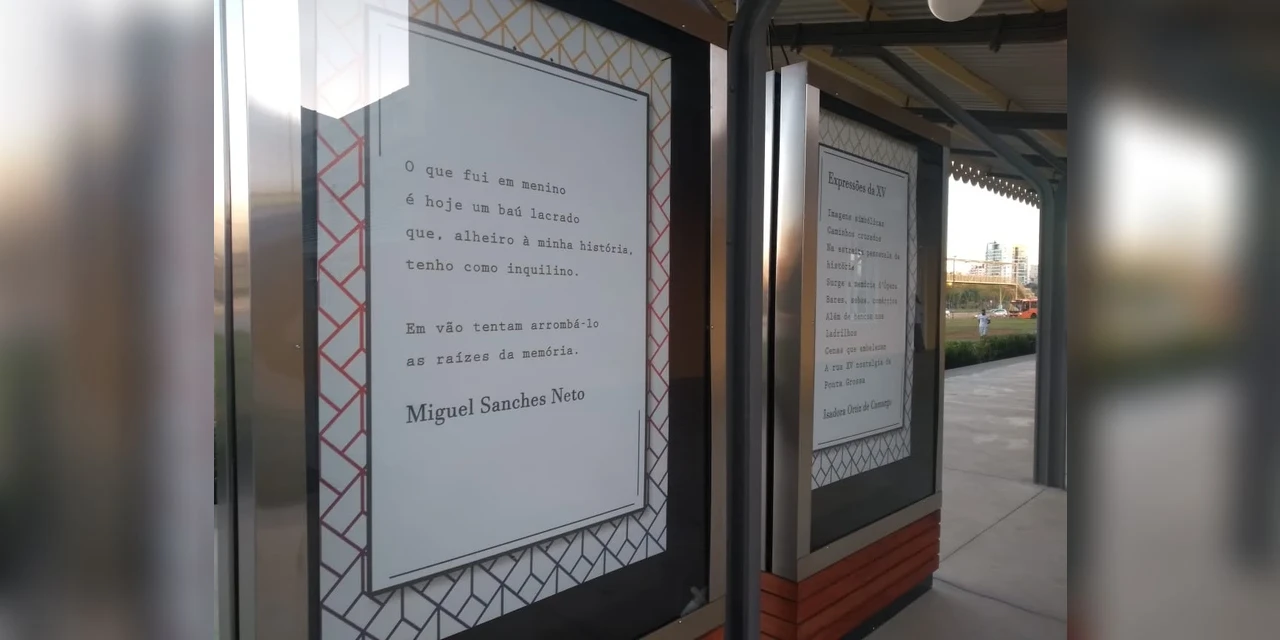 O que fui em menino
é hoje um baú lacrado
que, alheiro à minha história,
tenho como inquilino.
Em vão tentam arrombá-lo
as raízes da memória.
Miguel Sanches Neto
Expressões da XV
Imagens simbólicas
Caminhos cruzados
Na estreita passagem da
história
Surge a memória d'Ópera
Bares, sebos, comércios
Além de
ladrilhos
Cenas que embalam
A rua XV nostalgia de
Ponta Grossa
Isadora Ortiz de Camargo